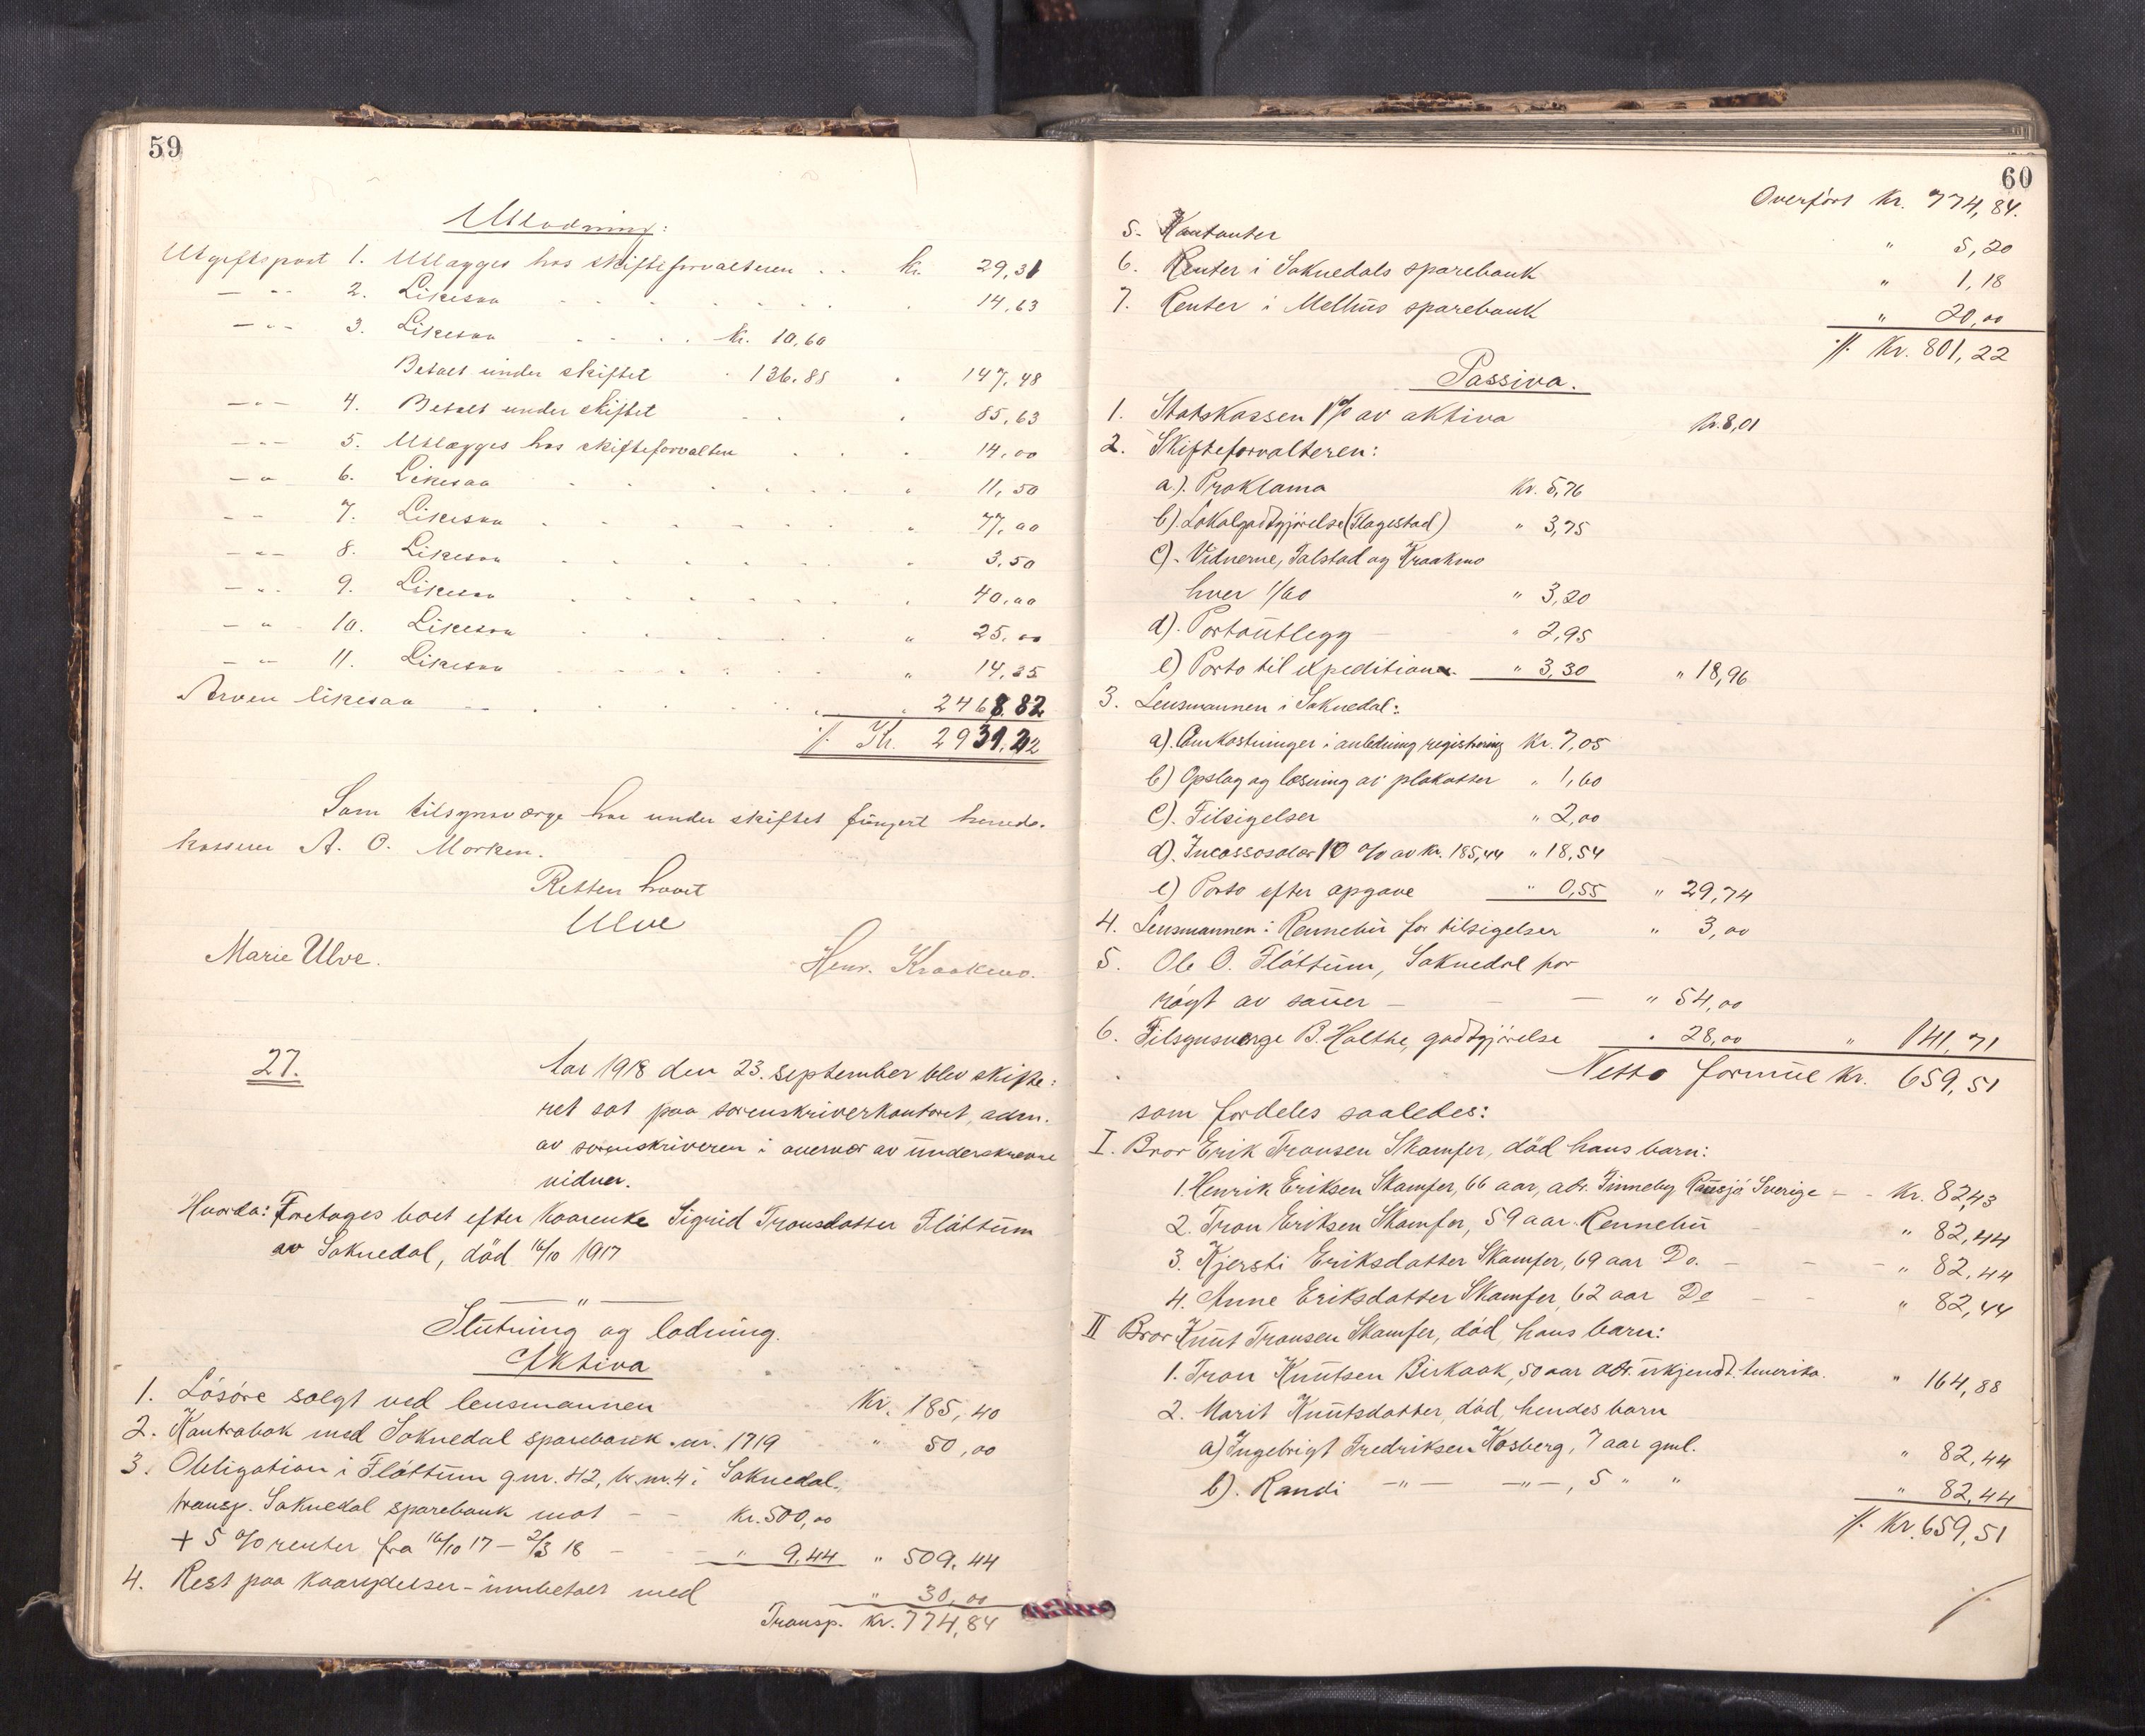 59
Utlodning:
Utgiftspost 1. Utlægges hos skifteforvalteren . . kr. 29,31
— " — 2. Likesaa 14,63
— " — 3. Likesaa kr. 10,60
Betalt under skiftet " 136.88 " 147,48
— " — 4. Betalt under skiftet 85,63
— " — 5. Utlægges hos skifteforvalten 14,00
— " 6. Likesaa " 11,50
— " — 7. Likesaa " 77,00
— " — 8. Likesaa " 3,50
— " — 9. Likesaa " 40,00
— " — 10. Likesaa " 25,00
— " — 11. Likesaa " 14,35
Arven likesaa " 2468.82
//. Kr. 2931,22
Som tilsynsværge har under skiftet fungert herreds-
kasserer A. O. Morken.
Retten hævet
Ulve
Marie Ulve. Henr. Kraakmo.
27. Aar 1918 den 23. september blev skifte-
ret sat paa sorenskriverkontoret, adm.
av sorenskriveren i overvær av underskrevne
vidner.
Hvorda: Foretages boet efter kaarenke Sigrid Tronsdatter Flåttum
av Soknedal, död 16/10 1917
— " —
Slutning og lodning.
Aktiva
1. Lösöre solgt ved lensmannen Kr. 185,40
2. Kontrabok med Soknedal sparebank nr. 1719 " 50,00
3. Obligation i Flåttum g.nr. 42, br.nr. 4 i Soknedal,
transp. Soknedal sparebank mot — — Kr. 500,00
+ 5 % renter fra 16/10 17 – 2/3 18 — — " 9,44 " 509,44
4. Rest paa kaarydelser - innbetalt med " 30,00
Transp. kr. 774,84
60
Overfört Kr. 774,84.
5. Kontanter " 5,20
6. Renter i Soknedals sparebank " 1,18
7. Renter i Melhus sparebank " 20,00
//. Kr. 801,22
Passiva.
1. Statskassen 1% av aktiva Kr. 8,01
2. Skifteforvalteren:
a). Proklama Kr. 5,76
b). Lokalgodtgjörelse (Flagestad) " 3,75
c). Vidnerne, Talstad og Kraakmo
hver 1/60 " 3,20
d). Portoutlegg — " 2,95
e) Porto til expeditioner " 3,30 " 18,96
3. Lensmannen i Soknedal:
a). Omkostninger i anledning registrering Kr. 7,05
b) Opslag og læsning av plakatter " 1,60
c). Tilsigelser " 2,00
d). Incassosalær 10 % av kr. 185,44 " 18,54
e) Porto efter opgave " 0,55 " 29,74
4. Lensmannen i Rennebu for tilsigelser " 3,00
5. Ole O. Flåttum, Soknedal for
rögt av sauer — — — " 54,00
6. Tilsynsverge B. Halthe, godtgjörelse " 28,00 " 141,71
Netto formue Kr. 659,51
som fordeles saaledes:
I. Bror Erik Tronsen Skamfer, död hans barn:
1. Henrik Eriksen Skamfer, 66 aar, adr. Finneby Ramsjö Sverige — - Kr. 82,43
2. Tron Eriksen Skamfer, 59 aar. Rennebu " 82,44
3. Kjersti Eriksdatter Skamfer, 69 aar Do. — — — " 82,44
4. Anne Eriksdatter Skamfer, 62 aar Do — — " 82,44
II Bror Knut Tronsen Skamfer, död, hans barn:
1. Tron Knutsen Birkaak, 50 aar adr. ukjendt. Amerika. " 164,88
2. Marit Knutsdatter, död, hendes barn
a) Ingebrigt Fredriksen Kosberg, 7 aar gml. " 82,44
b). Randi —"— —"—, 5 " " " 82,44
//. Kr. 659,51